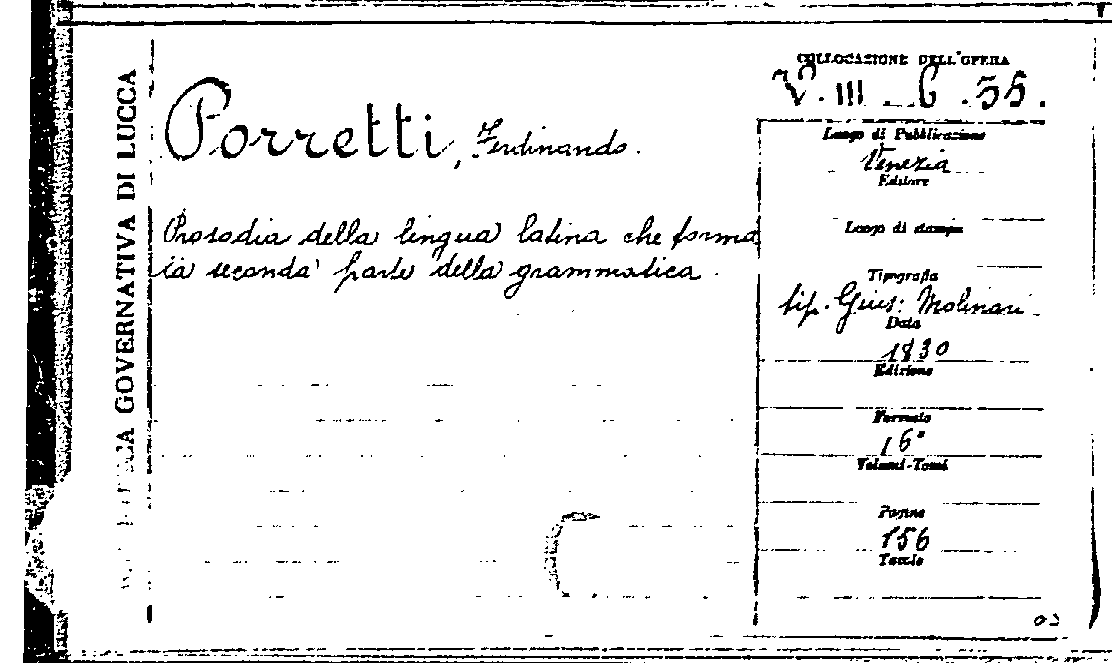 GOVERNATIVA DI LUCCA
Porretti, Ferdinando.
Prosodia della lingua latina che forma
la seconda parte della grammatica.
COLLOCAZIONE DELL'OPERA
V. III. 6. 55.
Luogo di Pubblicazione
Venezia
Editore
Luogo di stampa
Tipografia
tip. Gius: Molinari
Data
1830
Edizione
Formato
16°
Volumi-Tomi
Pagine
156
Tavole